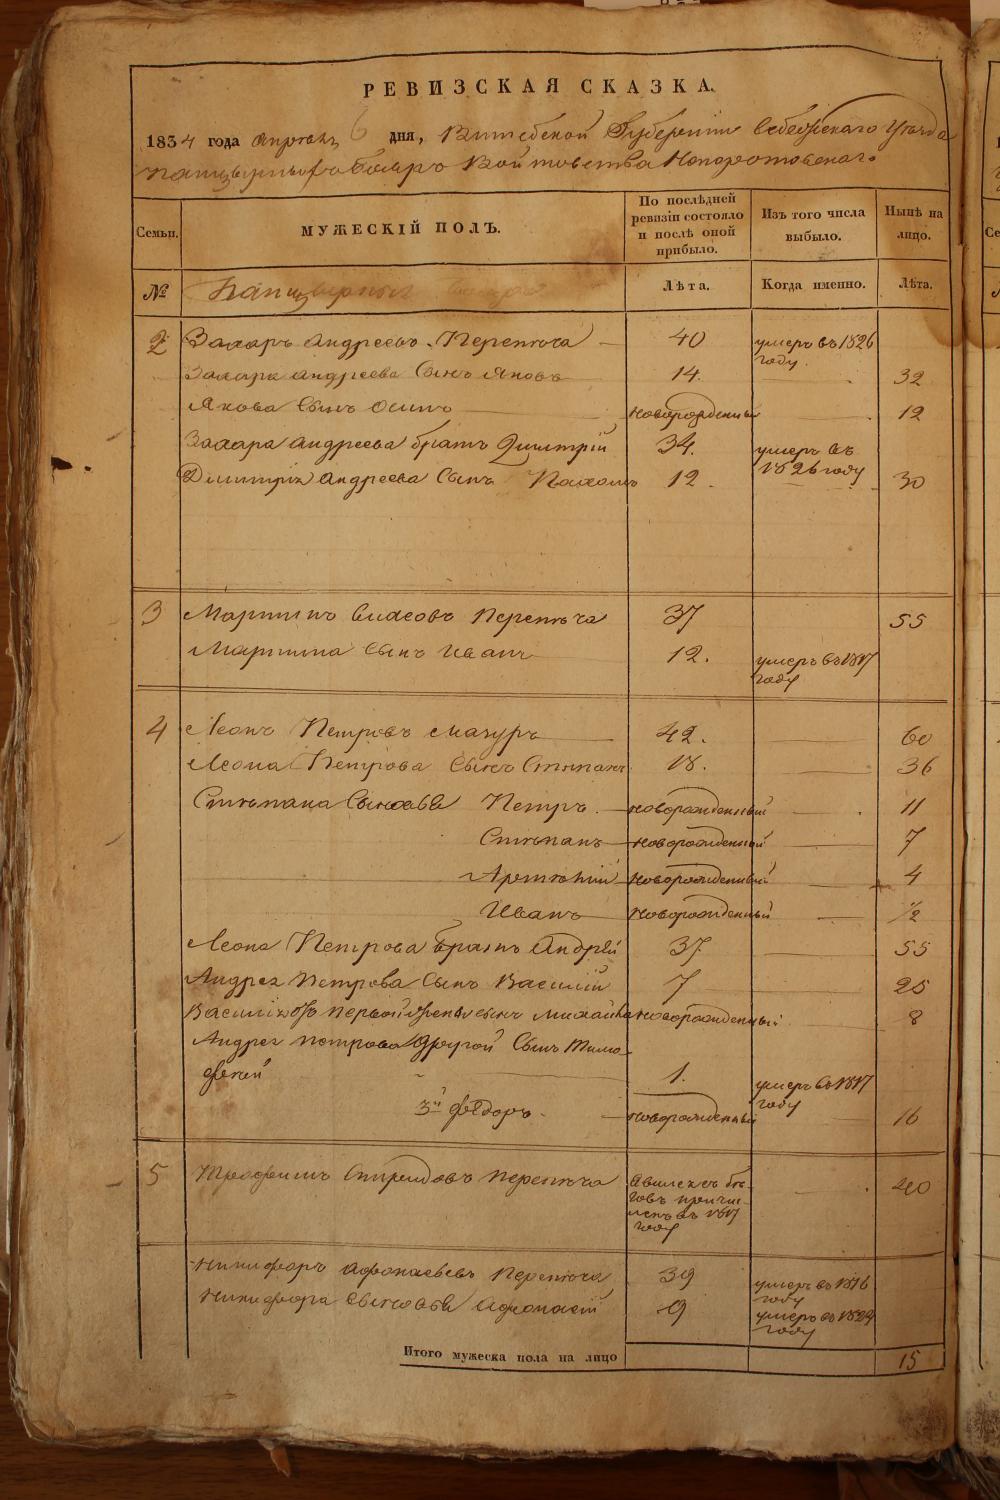 РЕВИЗСКАЯ СКАЗКА.
1834 года Апреля 6 дня, Витебской Губернии Себежскаго Уезда
панцырныхъ бояръ Войтовства Непоротовскаго
Семьи.
МУЖЕСКІЙ ПОЛЪ.
По послѣдней ревизіи состояло и послѣ оной прибыло.
Изъ того числа выбыло.
Нынѣ на лицо.
№
Панцырныхъ бояръ
Лѣта.
Когда именно.
Лѣта.
2 Захаръ Андреевъ Перепѣча 40 умеръ въ 1826
году
Захара Андреева Сынъ Яковъ 14. 32
Якова Сынъ Осипъ новорожденный 12
Захара Андреева братъ Димитрій 34. умеръ въ
1826 году
Димитрія Андреева Сынъ Пахомъ 12. 30
3 Мартинъ Власовъ Перепѣча 37 55
Мартина Сынъ Иванъ 12. умеръ въ 1817
году
4 Леонъ Петровъ Мазуръ 42. 60
Леона Петрова Сынъ Степанъ 18. 36
Степана Сыновья Петръ новорожденный 11
Степанъ новорожденный 7
Артемій новорожденный 4
Иванъ новорожденный 1/2
Леона Петрова братъ Андрей 37 55
Андрея Петрова Сынъ Василій 7 25
Василія отъ первой жены сынъ Михайла новорожденный 8
Андрея Петрова другой Сынъ Тимо-
фей 1. умеръ въ 1817
году
3й Федоръ новорожденный 16
5 Трофимъ Спиридовъ Перепѣча явился съ бѣ-
говъ причи-
сленъ въ 1817
году 40
Никифоръ Афонасьевъ Перепѣча 39 умеръ въ 1816
году
Никифора Сыновья Афонасій 9 умеръ въ 1824
году
Итого мужеска пола на лицо 15